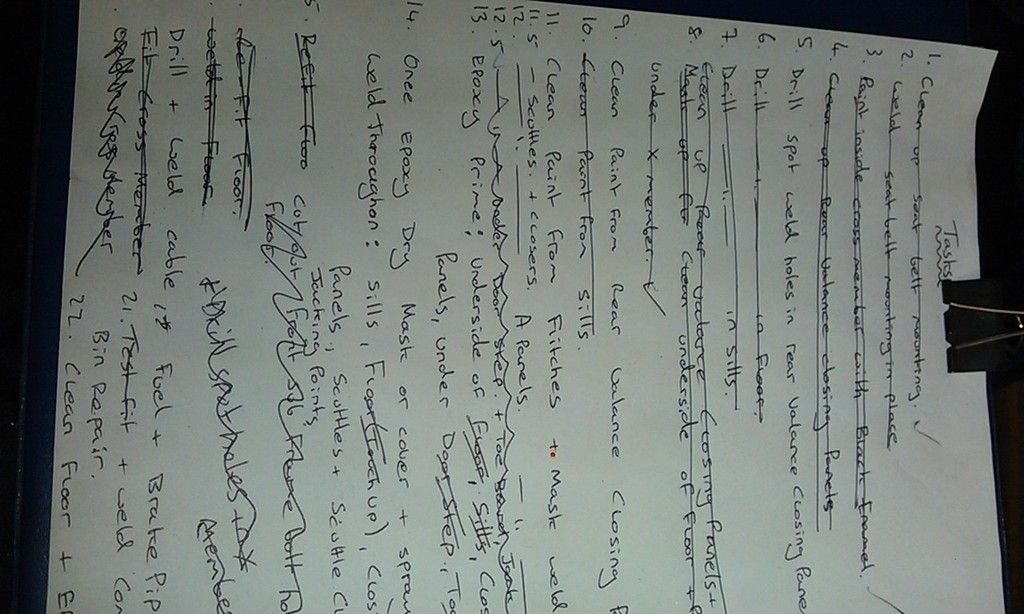 Tasks
1. Clean up seat belt mounting. ✓
2. Weld seat belt mounting in place
3. Paint inside cross member with Black Enamel. ✓
4. Clean up Rear Valance closing Panels
5. Drill spot weld holes in rear Valance Closing Pane
6. Drill — " — in Floor.
7. Drill — " — in sills.
8. Clean up Rear Valance Closing Panels +
Mask up for Clean underside of Floor +
under X member. ✓
9. Clean Paint from Rear Valance Closing
10. Clean Paint from Sills.
11. Clean Paint from Flitches to Mask weld
11.5 — Scuttles + closers.
12. — " — A Panels. — " —
12.5 Door step + Toe Board,
13. Epoxy Prime; underside of Floor, Sills, Clos
Panels, under Door Step, To
14. Once Epoxy Dry Mask or cover + spray
Weld Through on: Sills, Floor (touch up), Clos
Panels, Scuttles + Scuttle Cl
Jacking Points.
5. Refit Floor
cut/out
Floor/
. Re-fit Floor.
. weld in Floor
# Drill spot holes
Drill + weld cable, Fuel + Brake Pip
Fit Cross Member
21. Test fit + weld
Bin Repair.
22. Clean Floor +